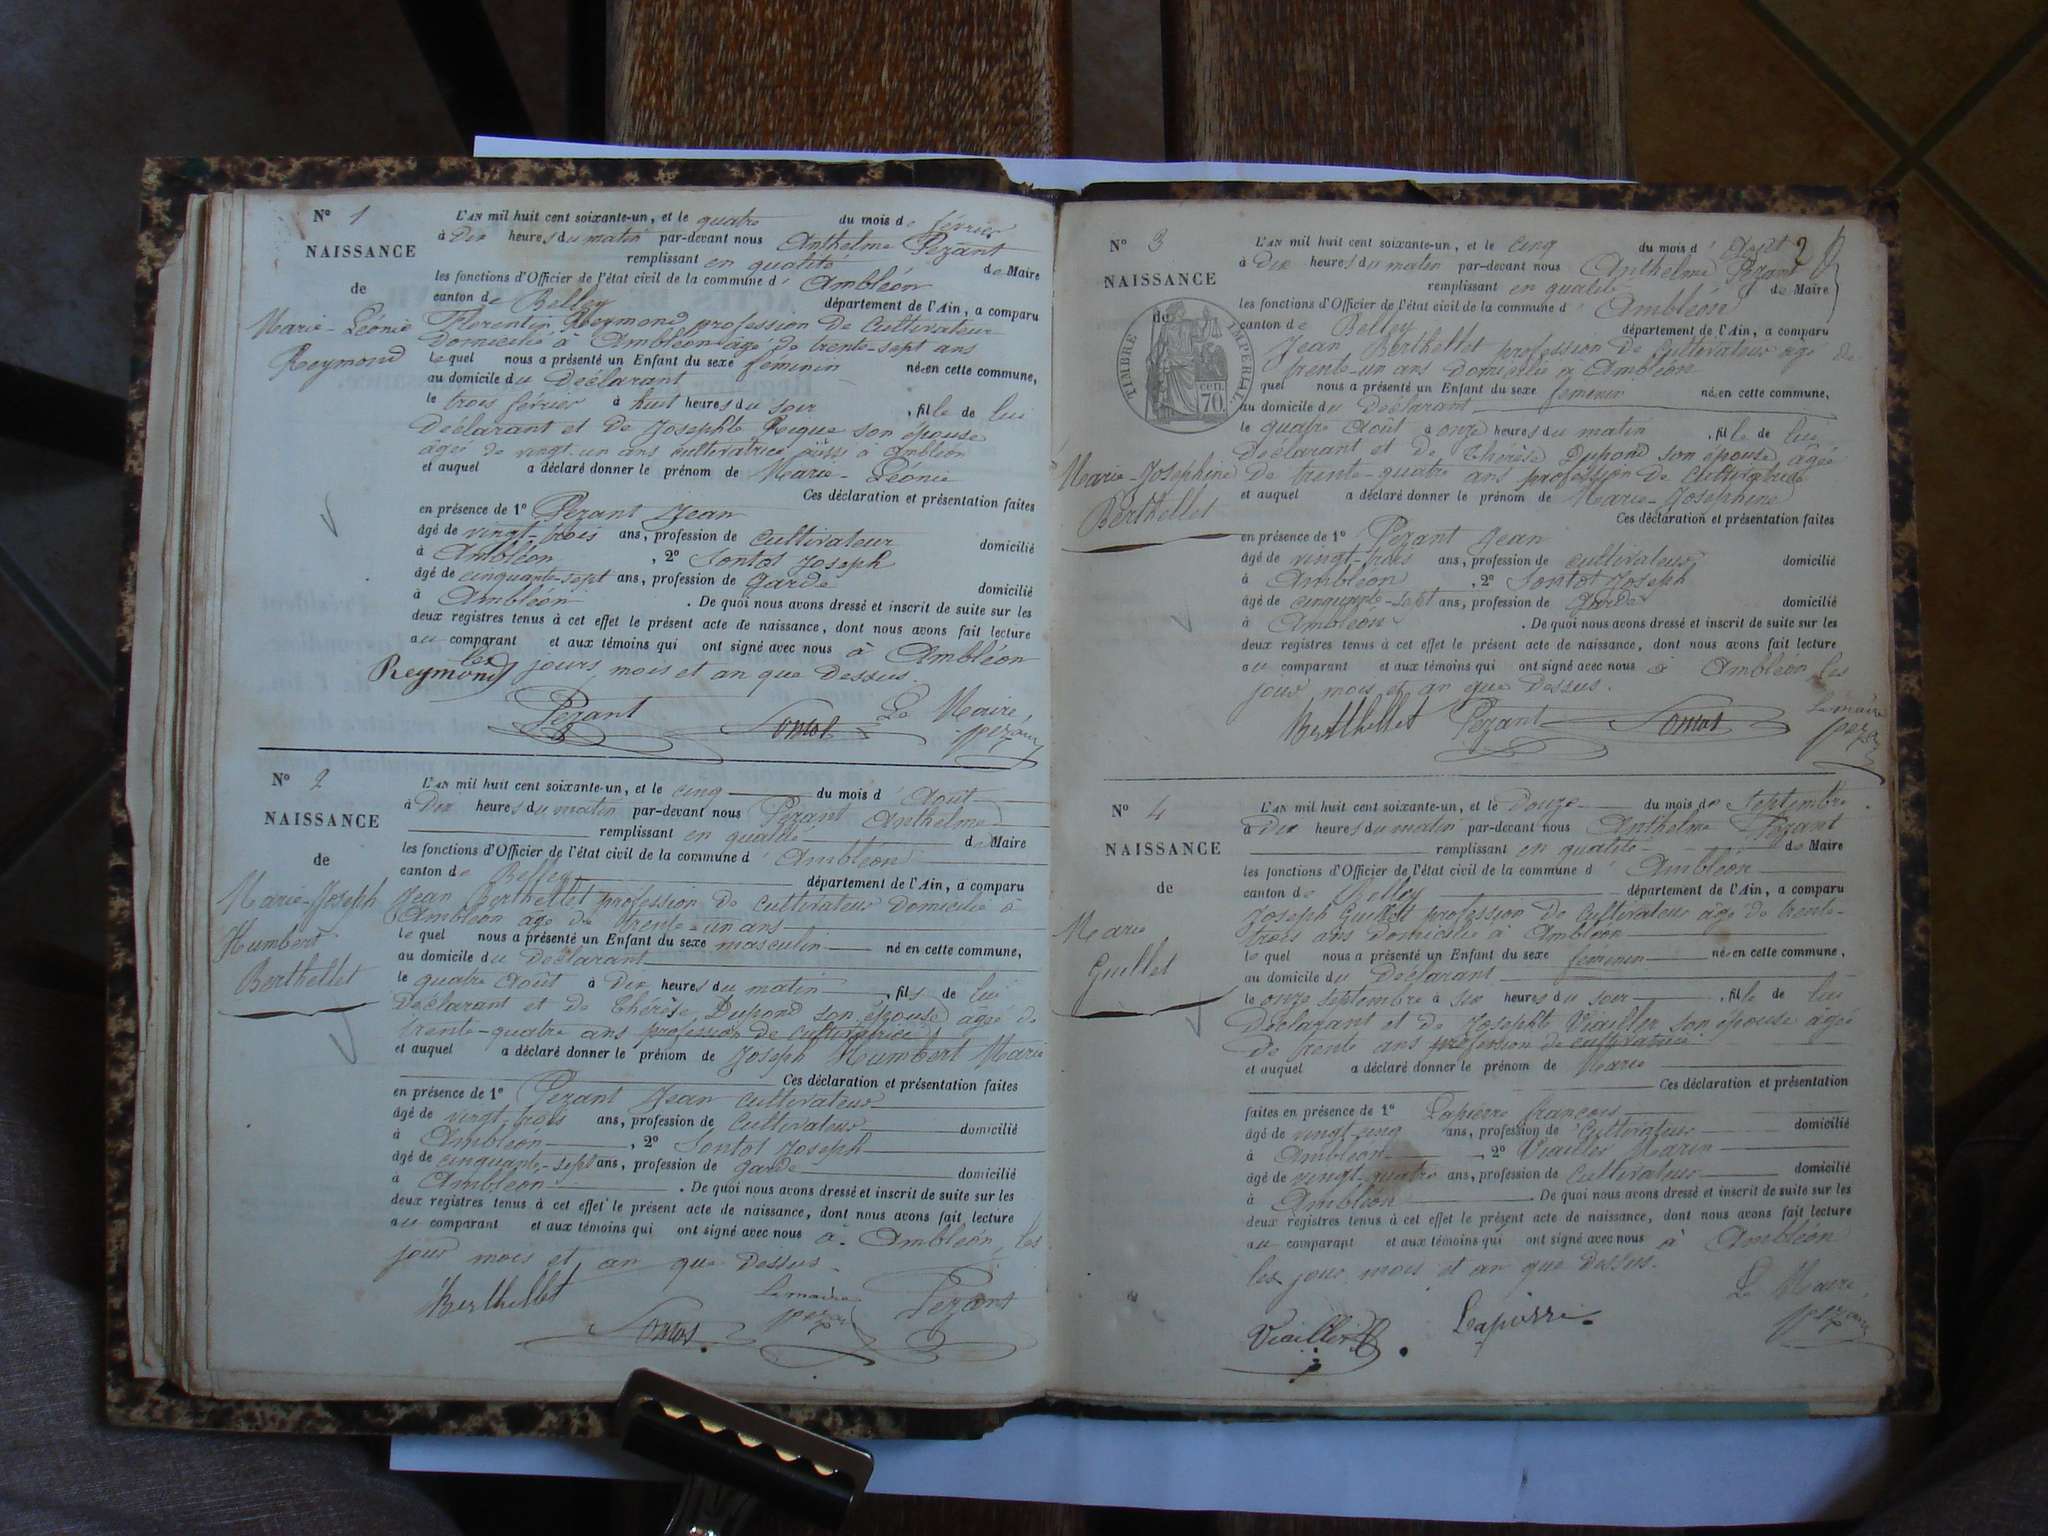 N° 1
NAISSANCE
de
Marie-Léonie
Reymond
L'AN mil huit cent soixante-un, et le quatre du mois de février
à Dix heures du matin par-devant nous Anthelme Pezant
remplissant en qualité de Maire
les fonctions d'Officier de l'état civil de la commune d' Ambléon
canton de Belley département de l'Ain, a comparu
Florentin Reymond profession de Cultivateur
Domicilié à Ambléon âgé de trente-sept ans
le quel nous a présenté un Enfant du sexe féminin née en cette commune,
au domicile du Déclarant
le trois février à huit heures du soir, fille de lui
Déclarant et de Josephte Reque son épouse
âgée de vingt-un ans cultivatrice à Ambléon
et auquel a déclaré donner le prénom de Marie-Léonie
Ces déclaration et présentation faites
en présence de 1° Pezant Jean
âgé de vingt-trois ans, profession de Cultivateur domicilié
à Ambléon, 2° Sontot Joseph
âgé de cinquante-sept ans, profession de Garde domicilié
à Ambléon. De quoi nous avons dressé et inscrit de suite sur les
deux registres tenus à cet effet le présent acte de naissance, dont nous avons fait lecture
au comparant et aux témoins qui ont signé avec nous à Ambléon
les jours, mois et an que Dessus.
Reymond
Pezant Sontot Le Maire
pezant
N° 2
NAISSANCE
de
Marie-Joseph
Humbert
Berthellet
L'AN mil huit cent soixante-un, et le cinq du mois d' Août
à Dix heures du matin par-devant nous Pezant Anthelme
remplissant en qualité de Maire
les fonctions d'Officier de l'état civil de la commune d' Ambléon
canton de Belley département de l'Ain, a comparu
Jean Berthellet profession de cultivateur Domicilié à
Ambléon âgé de trente-un ans
le quel nous a présenté un Enfant du sexe masculin né en cette commune,
au domicile du Déclarant
le quatre Août à Dix heures du matin, fils de lui
Déclarant et de Thérèse Dupond son épouse âgée de
trente-quatre ans profession de cultivatrice
et auquel a déclaré donner le prénom de Joseph Humbert Marie
Ces déclaration et présentation faites
en présence de 1° Pezant Jean cultivateur
âgé de vingt-trois ans, profession de Cultivateur domicilié
à Ambléon, 2° Sontot Joseph
âgé de cinquante-sept ans, profession de garde domicilié
à Ambléon. De quoi nous avons dressé et inscrit de suite sur les
deux registres tenus à cet effet le présent acte de naissance, dont nous avons fait lecture
au comparant et aux témoins qui ont signé avec nous à Ambléon, les
jour mois et an que Dessus.
Berthellet Sontot Le maire pezant Pezant
2
N° 3
NAISSANCE
de
TIMBRE IMPERIAL
70 cen.
Marie-Josephine
Berthellet
L'AN mil huit cent soixante-un, et le cinq du mois d' Août
à Dix heures du matin par-devant nous Anthelme Pezant
remplissant en qualité de Maire
les fonctions d'Officier de l'état civil de la commune d' Ambléon
canton de Belley département de l'Ain, a comparu
Jean Berthellet profession de Cultivateur âgé de
trente-un ans Domicilié à Ambléon
quel nous a présenté un Enfant du sexe féminin née en cette commune,
au domicile du Déclarant
le quatre Août à onze heures du matin, fille de lui
Déclarant et de Thérèse Dupond son épouse âgée
de trente-quatre ans profession de Cultivatrice
et auquel a déclaré donner le prénom de Marie-Josephine
Ces déclaration et présentation faites
en présence de 1° Pezant Jean
âgé de vingt-trois ans, profession de cultivateur domicilié
à Ambléon, 2° Sontot Joseph
âgé de cinquante-sept ans, profession de Garde domicilié
à Ambléon. De quoi nous avons dressé et inscrit de suite sur les
deux registres tenus à cet effet le présent acte de naissance, dont nous avons fait lecture
au comparant et aux témoins qui ont signé avec nous à Ambléon les
jour mois et an que Dessus.
Berthellet Pezant Sontot Le maire
pezant
N° 4
NAISSANCE
de
Marie
Guillet
L'AN mil huit cent soixante-un, et le Douze du mois de Septembre
à Dix heures du matin par-devant nous Anthelme Pezant
remplissant en qualité de Maire
les fonctions d'Officier de l'état civil de la commune d' Ambléon
canton de Belley département de l'Ain, a comparu
Joseph Guillet profession de Cultivateur âgé de trente-
trois ans Domicilié à Ambléon
le quel nous a présenté un Enfant du sexe féminin née en cette commune,
au domicile du Déclarant
le onze septembre à six heures du soir, fille de lui
Déclarant et de Josephte Viailler son épouse âgée
de trente ans profession de cultivatrice
et auquel a déclaré donner le prénom de Marie
Ces déclaration et présentation
faites en présence de 1° Lapierre françois
âgé de vingt-cinq ans, profession de Cultivateur domicilié
à Ambléon, 2° Viailler Marin
âgé de vingt-quatre ans, profession de Cultivateur domicilié
à Ambléon. De quoi nous avons dressé et inscrit de suite sur les
deux registres tenus à cet effet le présent acte de naissance, dont nous avons fait lecture
au comparant et aux témoins qui ont signé avec nous à Ambléon
les jour mois et an que Dessus.
Viailler Lapierre Le Maire,
pezant